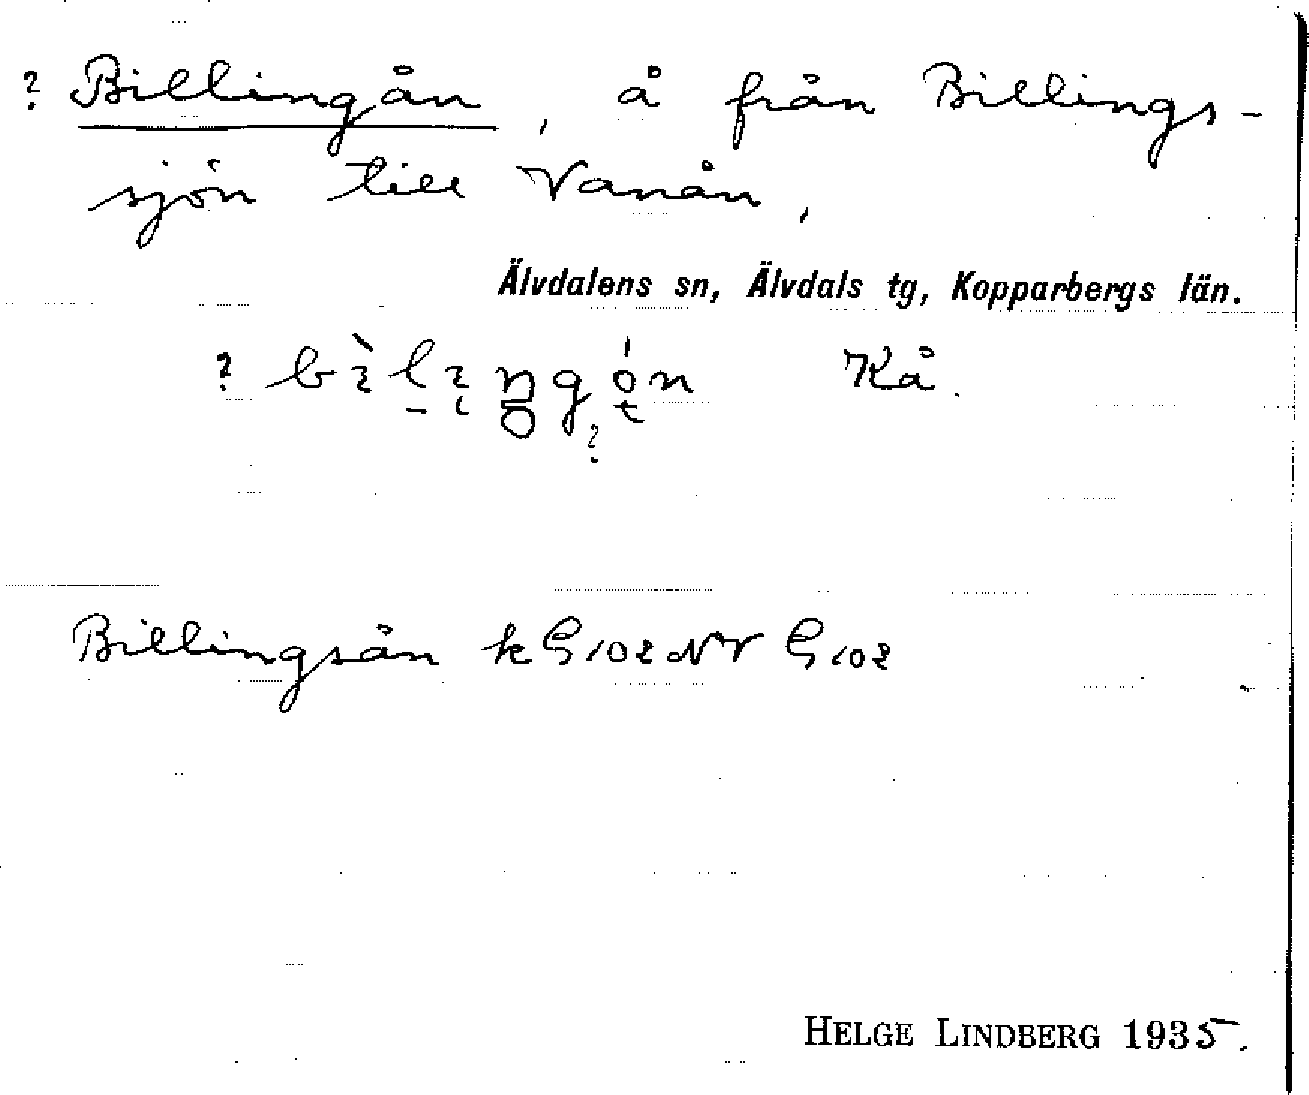 ? Billingån, å från Billings-
sjön till Vanån,
Älvdalens sn, Älvdals tg, Kopparbergs län.
? Kå.
Billingsån k G 102 NV G 102
HELGE LINDBERG 1935.